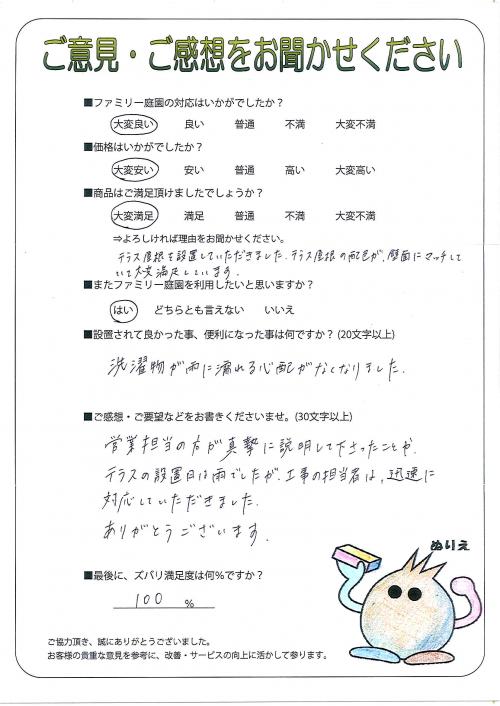 ご意見・ご感想をお聞かせください
■ファミリー庭園の対応はいかがでしたか？
大変良い 良い 普通 不満 大変不満
■価格はいかがでしたか？
大変安い 安い 普通 高い 大変高い
■商品はご満足頂けましたでしょうか？
大変満足 満足 普通 不満 大変不満
⇒よろしければ理由をお聞かせください。
テラス屋根を設置していただきました。テラス屋根の配色が、壁面にマッチして
いて大変満足しています。
■またファミリー庭園を利用したいと思いますか？
はい どちらとも言えない いいえ
■設置されて良かった事、便利になった事は何ですか？(20文字以上)
洗濯物が雨に濡れる心配がなくなりました。
■ご感想・ご要望などをお書きくださいませ。(30文字以上)
営業担当の方が真摯に説明して下さったことや、
テラスの設置日は雨でしたが、工事の担当者は、迅速に
対応していただきました。
ありがとうございます。
ぬりえ
■最後に、ズバリ満足度は何％ですか？
100 ％
ご協力頂き、誠にありがとうございました。
お客様の貴重な意見を参考に、改善・サービスの向上に活かして参ります。